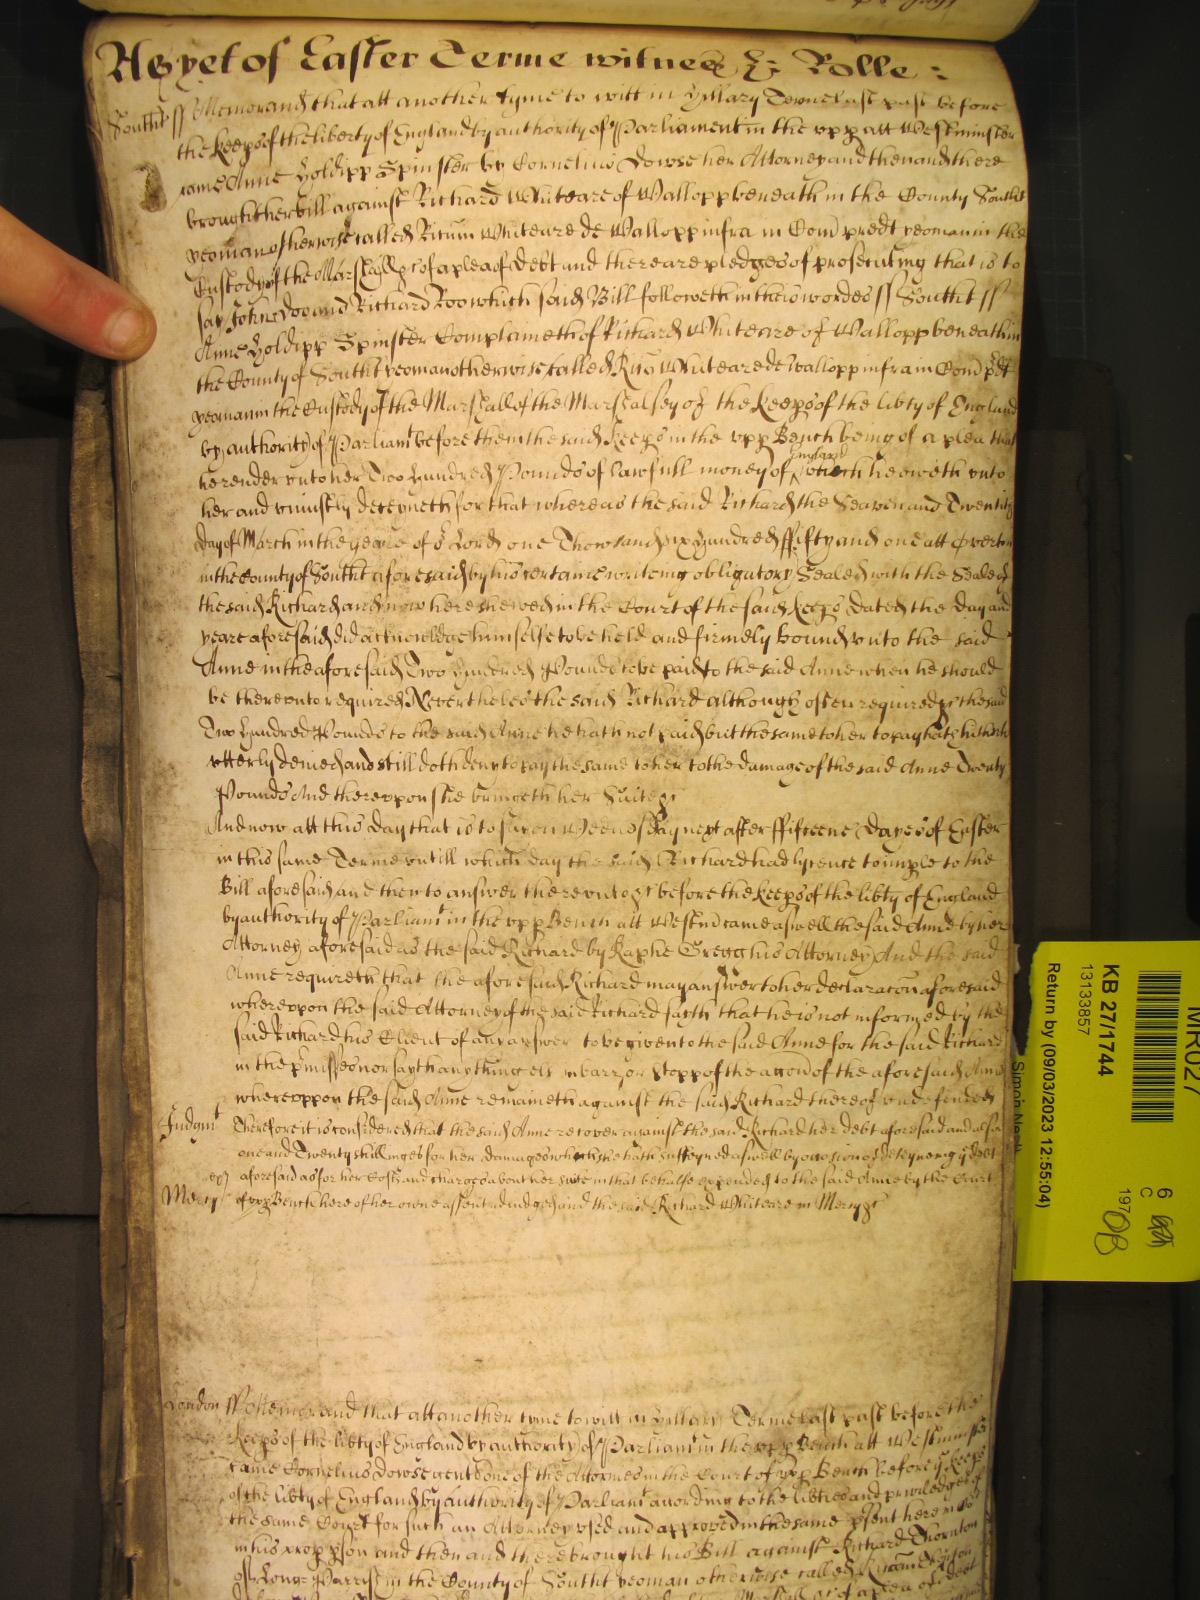 As yet of Easter Terme witnes &c: Rolle:
Southt ss Memorand that att another tyme to witt in Hillary Terme last past before
the Keeps of the liberty of England by authority of Parliament in the upp att Westminster
came Anne Holdipp Spinster by Cornelius Dowse her Attorney and then and there
brought her bill against Richard Whiteare of Wallopp beneath in the County Southt
yeoman otherwise called Ricum Whiteare de Wallopp infra in Com predt yeoman in the
Custody of the Marshall &c of a plea of debt and there are pledges of prosecuting that is to
say John Doo and Richard Roo which said Bill followeth in theis wordes ss Southt ss
Anne Holdipp Spinster Complaineth of Richard Whiteare of Wallopp beneath in
the County of Southt yeoman otherwise called Ricu Whiteare de Wallopp infra in Com pdt
yeoman in the Custody of the Marshall of the Marshalsey of the Keeps of the libty of England
by authority of Parliamt before them the said Keeps in the upp Bench being of a plea that
he render unto her Two Hundred Pounds of lawfull money of England which he oweth unto
her and uniustly deteyneth for that whereas the said Richard the Seaven and Twentith
day of March in the yeare of or Lord one Thousand six Hundred ffifty and one att Overton
in the County of Southt aforesaid by his certaine writeing obligatory Sealed with the Seale of
the said Richard and now here shewed in the Court of the said Keeps Dated the day and
yeare aforesaid did acknowledge himselfe to be held and firmely bound unto the said
Anne in the aforesaid Two Hundred Pounds to be paid to the said Anne when he should
be thereunto required Neverthelesse the said Richard although often required &c the said
Two Hundred Pounds to the said Anne he hath not paid but the same to her to pay hath hitherto
utterly denied and still doth deny to pay the same to her to the damage of the said Anne Twenty
Pounds And thereupon she bringeth her Suite &c
And now att this day that is to say on Wednesday next after ffifteene dayes of Easter
in this same Terme untill which day the said Richard had lycence to imple to the
Bill aforesaid and then to answer thereunto &c before the Keeps of the libty of England
by authority of Parliamt in the upp Bench att Westm came aswell the said Anne by her
Attorney aforesaid as the said Richard by Raphe Gregg his Attorney And the said
Anne requireth that the aforesaid Richard may answer to her declaracon aforesaid
whereuppon the said Attorney of the said Richard sayth that he is not informed by the
said Richard his Client of any answer to be given to the said Anne for the said Richard
in the pmisses nor sayth any thing els in barr or stopp of the accon of the aforesaid Anne
whereuppon the said Anne remaineth against the said Richard thereof undefended
Judgmt Therefore it is considered that the said Anne recover against the said Richard her debt aforesaid and alsoe
one and Twenty shillinges for her damages which she hath susteyned aswell by occasion of deteyneing ye debt
aforesaid as for her Costs and charges about her suite in that behalfe expended to the said Anne by the Court
Mercy of upp Bench here of her owne assent adiudged and the said Richard Whiteare in Mercy &c
London ss Memorand that att another tyme to witt in Hillary Terme last past before the
Keeps of the libty of England by authority of Parliamt in the upp Bench att Westminster
came Cornelius Dowse gent one of the Attornies in the Court of upp Bench before ye Keeps
of the libty of England by authority of Parliamt according to the libties and priviledges of
the same Court for such an Attorney used and approved in the same psent here in Court
in his propp pson and then and there brought his Bill against Richard Thornton
of Longe Parrish in the County of Southt yeoman otherwise called
of a plea of debt
MR027
KB 27/1744
13133857
Return by (09/03/2023 12:55:04)
6
C
197